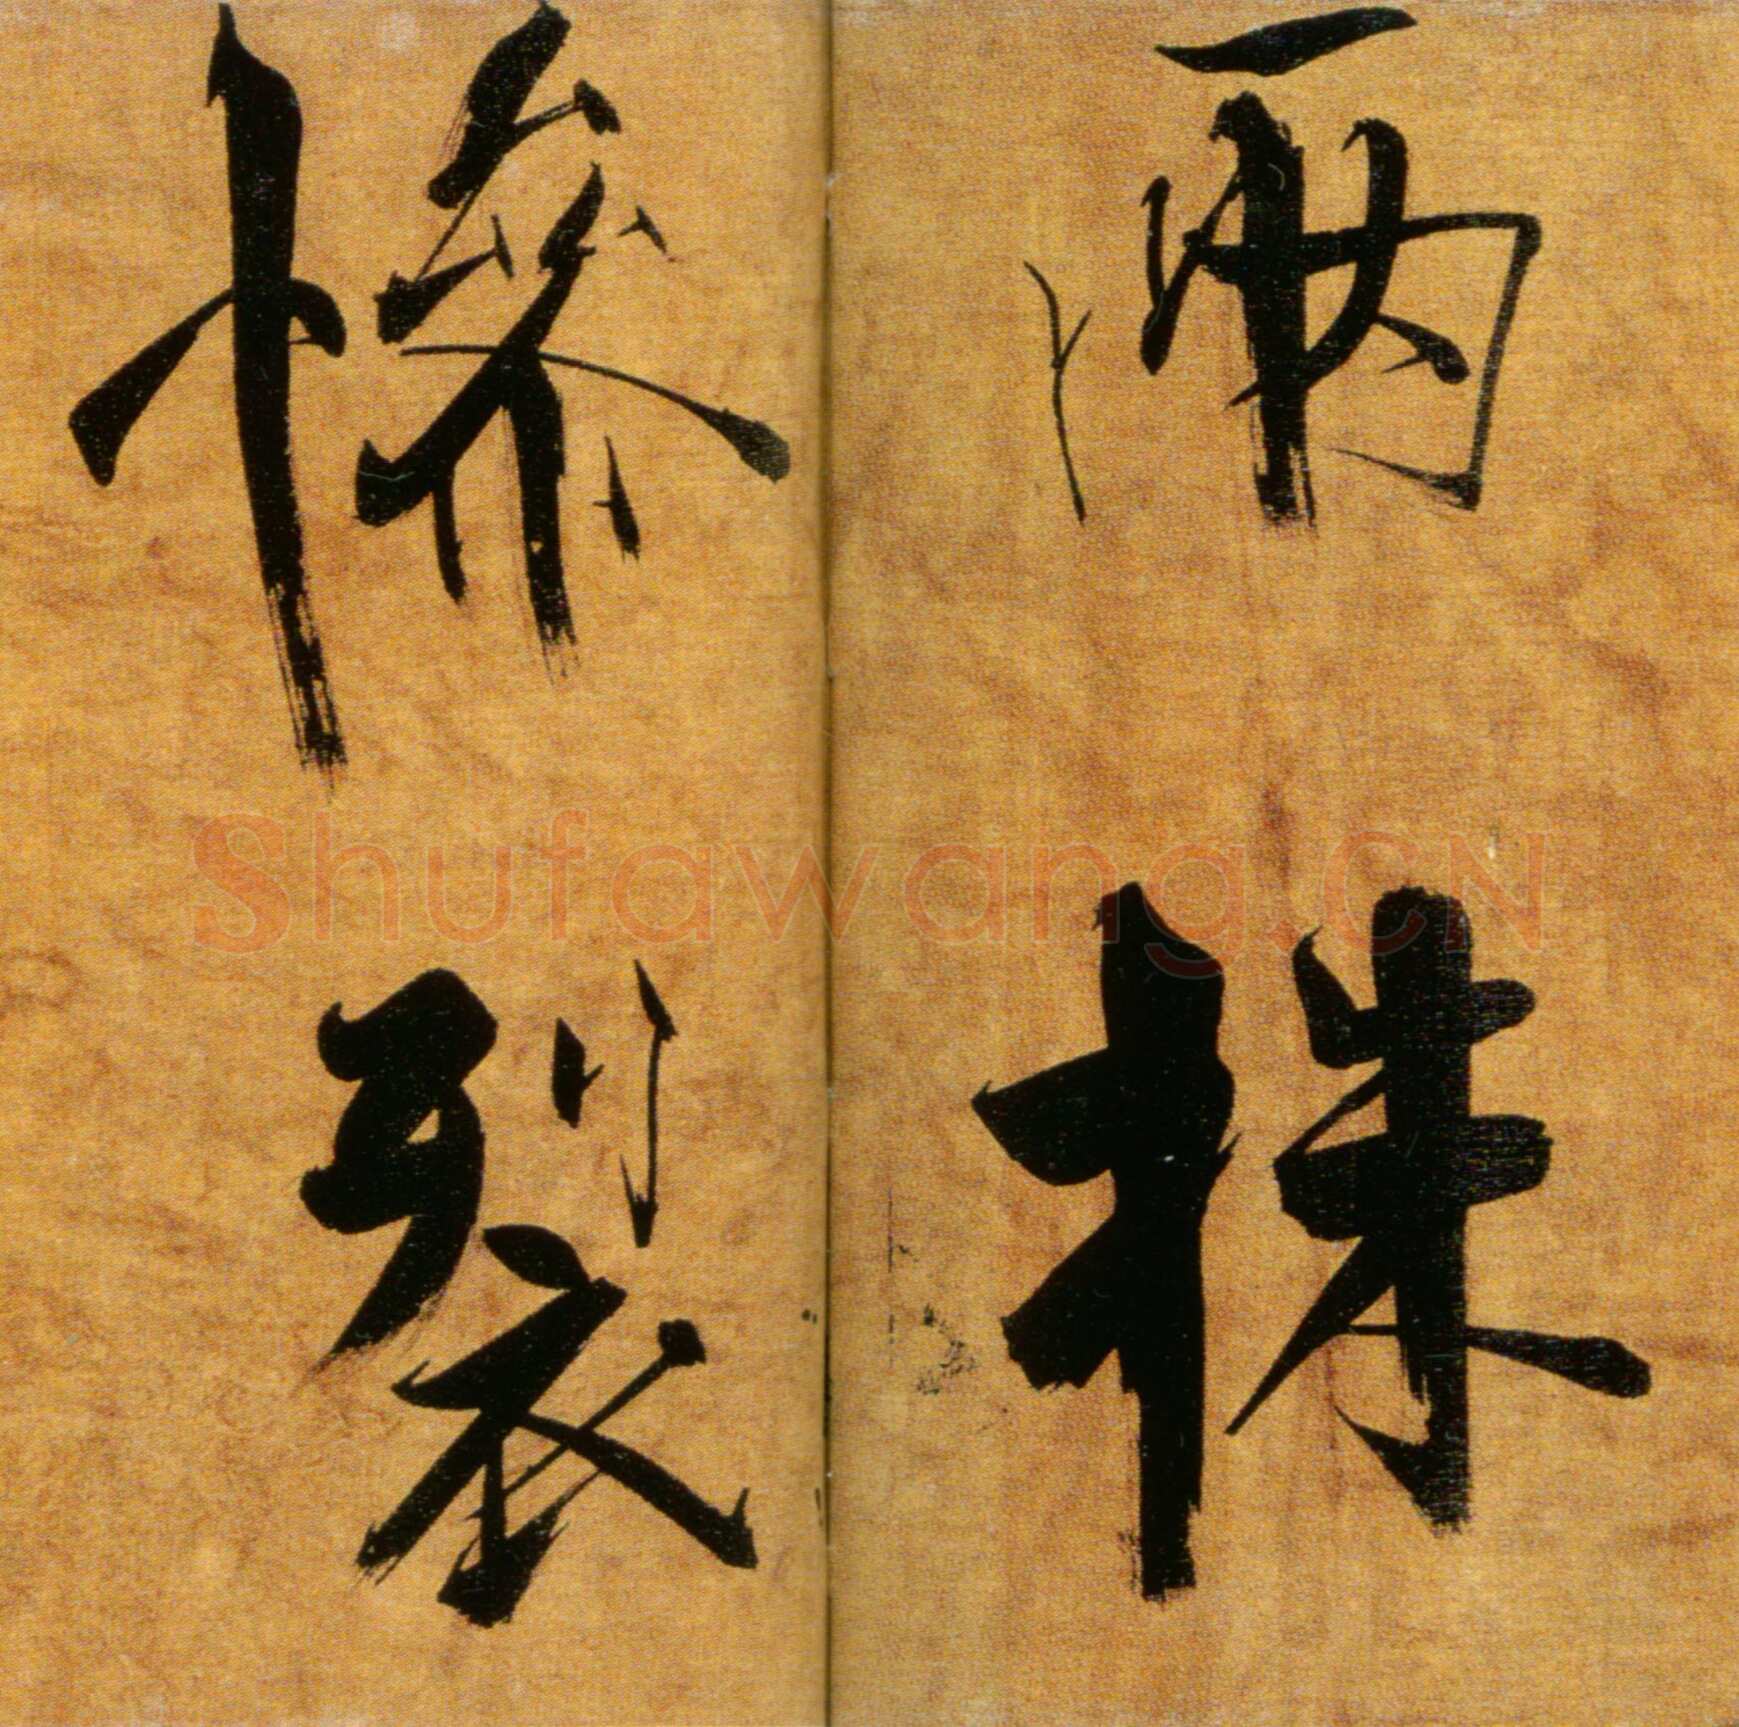 兩株
慘裂
Shufawang.CN